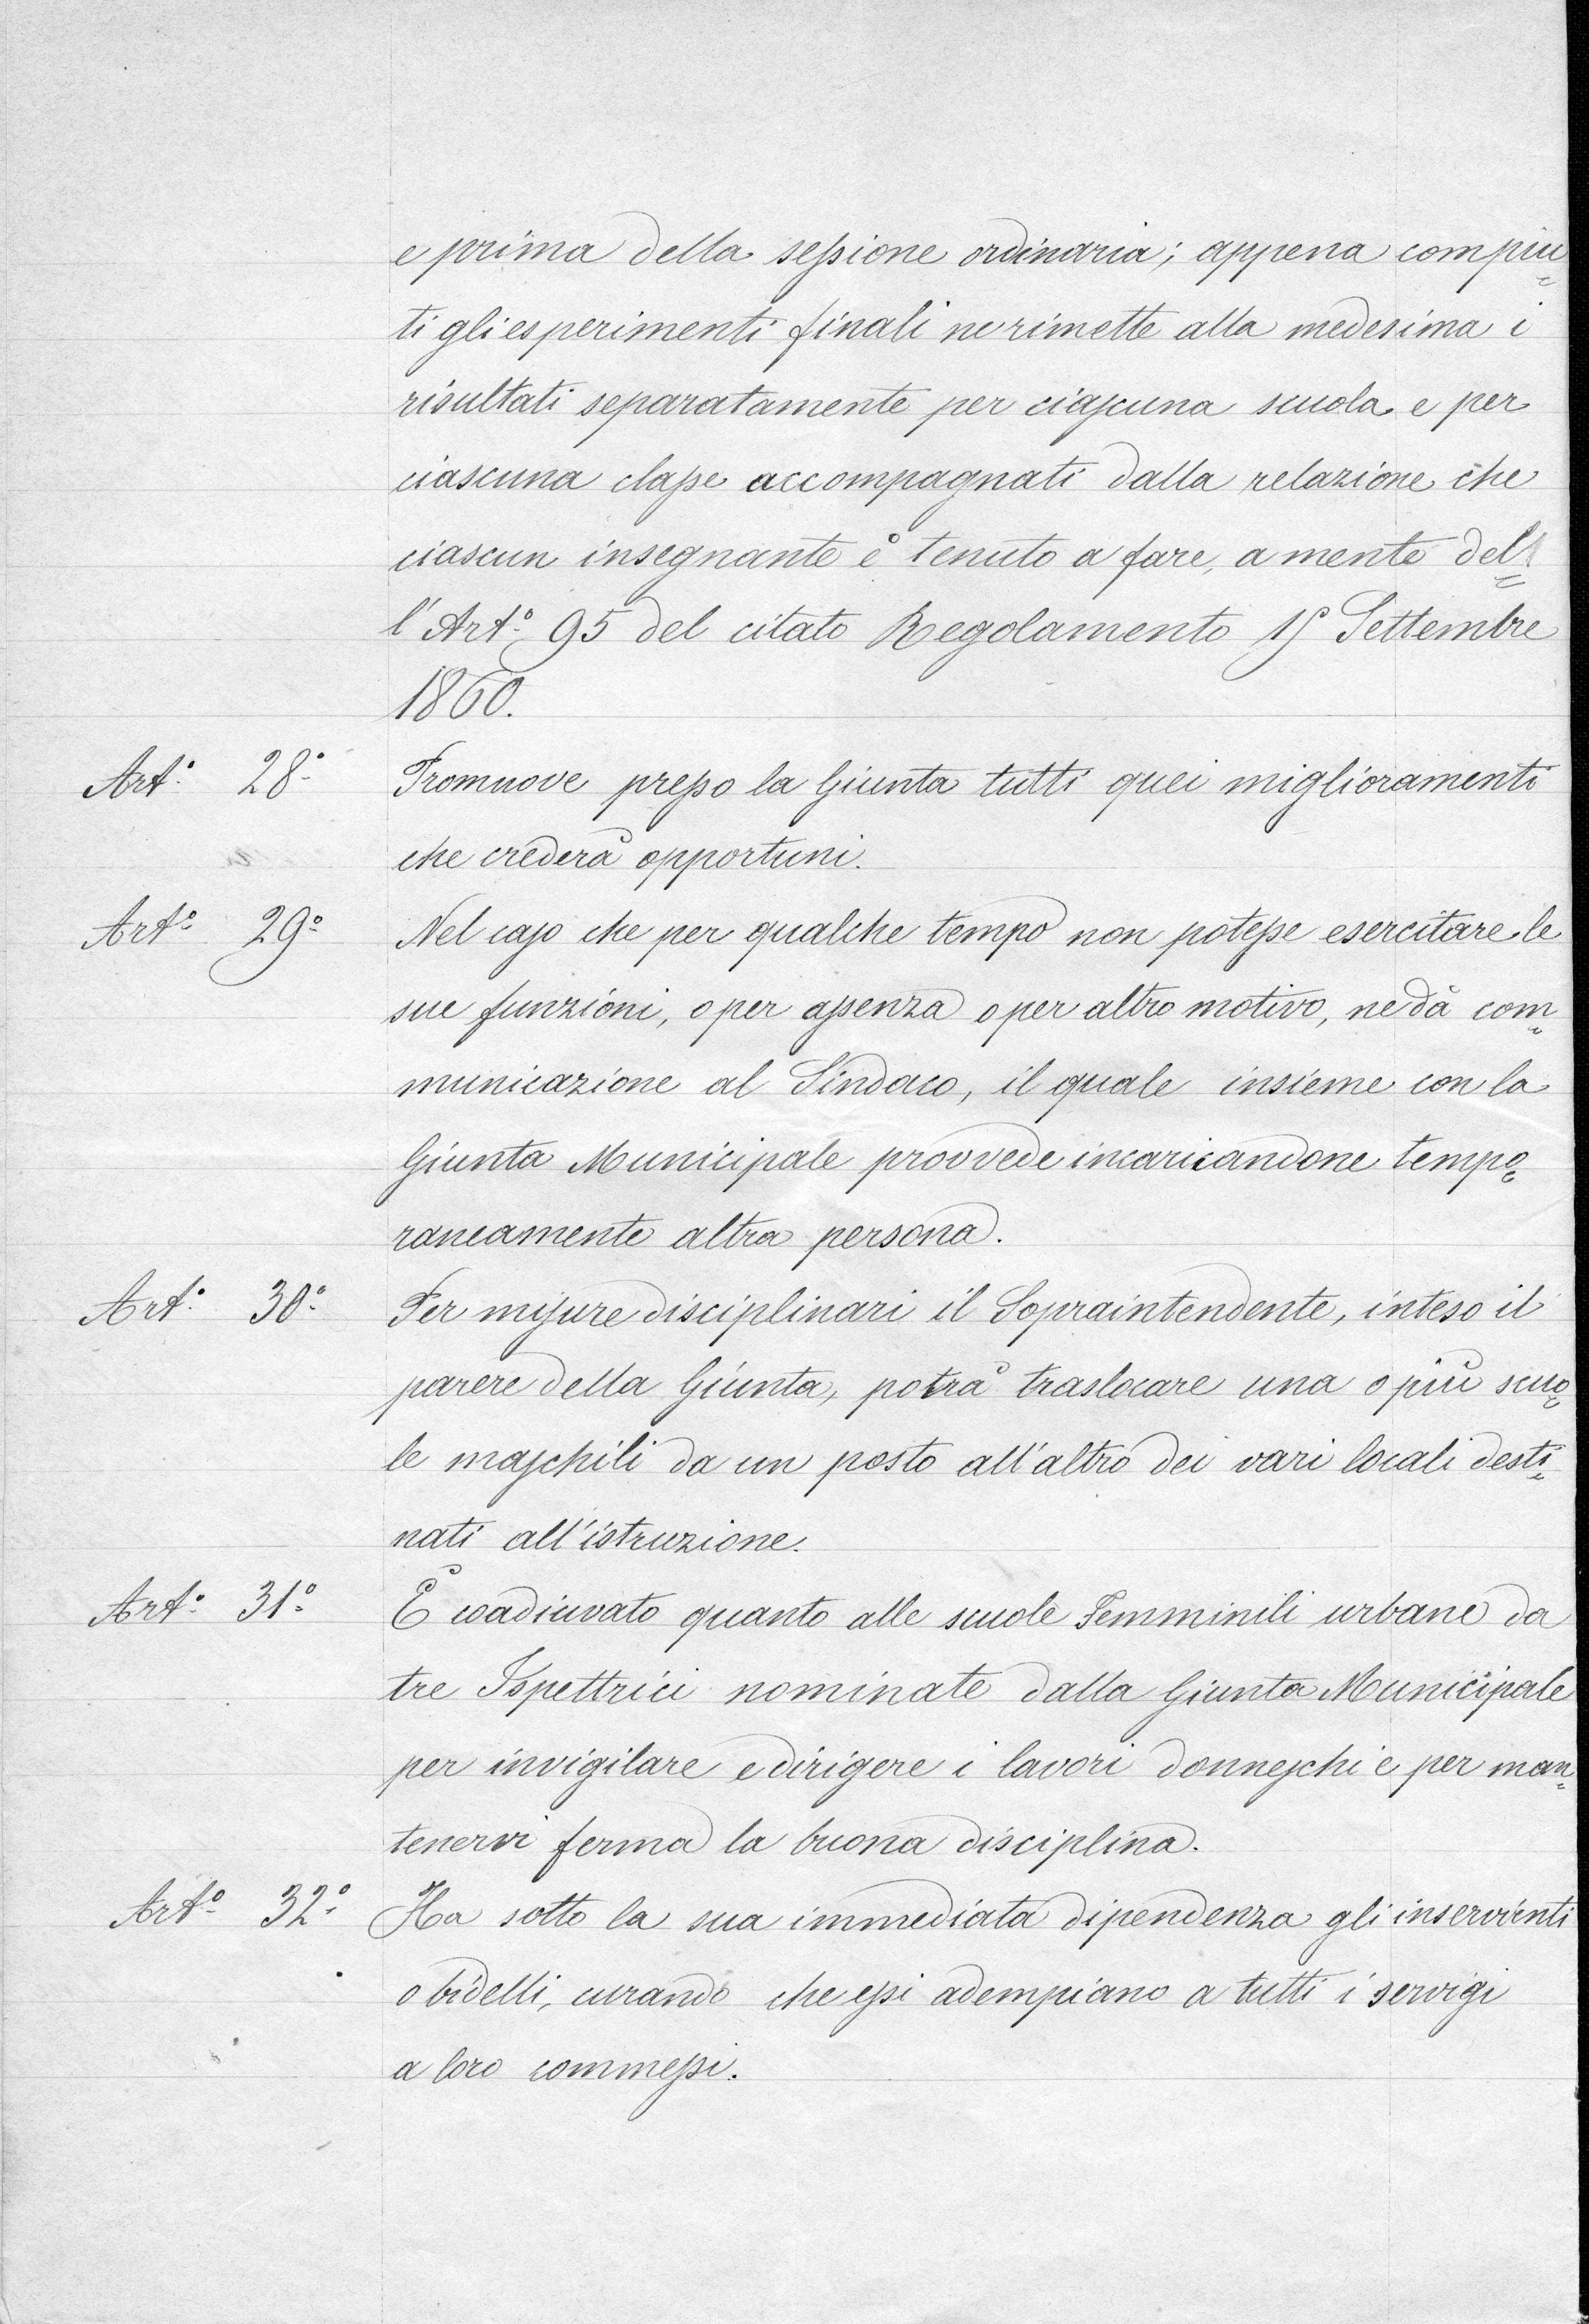 e prima della sessione ordinaria; appena compiu=
ti gli esperimenti finali ne rimette alla medesima i
risultati separatamente per ciascuna scuola e per
ciascuna classe accompagnati dalla relazione che
ciascun insegnante è tenuto a fare, a mente del=
l'Art.º 95 del citato Regolamento 15 Settembre
1860.
Art.º 28.º Promuove presso la Giunta tutti quei miglioramenti
che crederà opportuni.
Art.º 29.º Nel caso che per qualche tempo non potesse esercitare le
sue funzioni, o per assenza o per altro motivo, ne dà com=
municazione al Sindaco, il quale insieme con la
Giunta Municipale provvede incaricandone tempo=
raneamente altra persona.
Art.º 30.º Per misure disciplinari il Sopraintendente, inteso il
parere della Giunta, potrà traslocare una o più scuo=
le maschili da un posto all'altro dei vari locali desti=
nati all'istruzione.
Art.º 31.º È coadiuvato quanto alle scuole Femminili urbane da
tre Ispettrici nominate dalla Giunta Municipale
per invigilare e dirigere i lavori donneschi e per man=
tenervi ferma la buona disciplina.
Art.º 32.º Ha sotto la sua immediata dipendenza gli inservienti
o bidelli, curando che essi adempiano a tutti i servigi
a loro commessi.